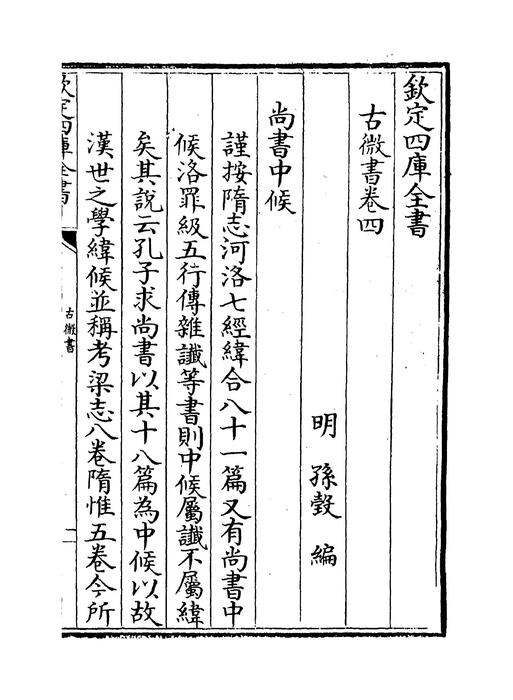 欽定四庫全書
古微書卷四
明 孫瑴 編
尚書中候
謹按隋志河洛七經緯合八十一篇又有尚書中
候洛罪級五行傳雜讖等書則中候屬讖不屬緯
矣其說云孔子求尚書以其十八篇為中候以故
漢世之學緯候並稱考梁志八卷隋惟五卷今所
欽定四庫全書
古微書
一